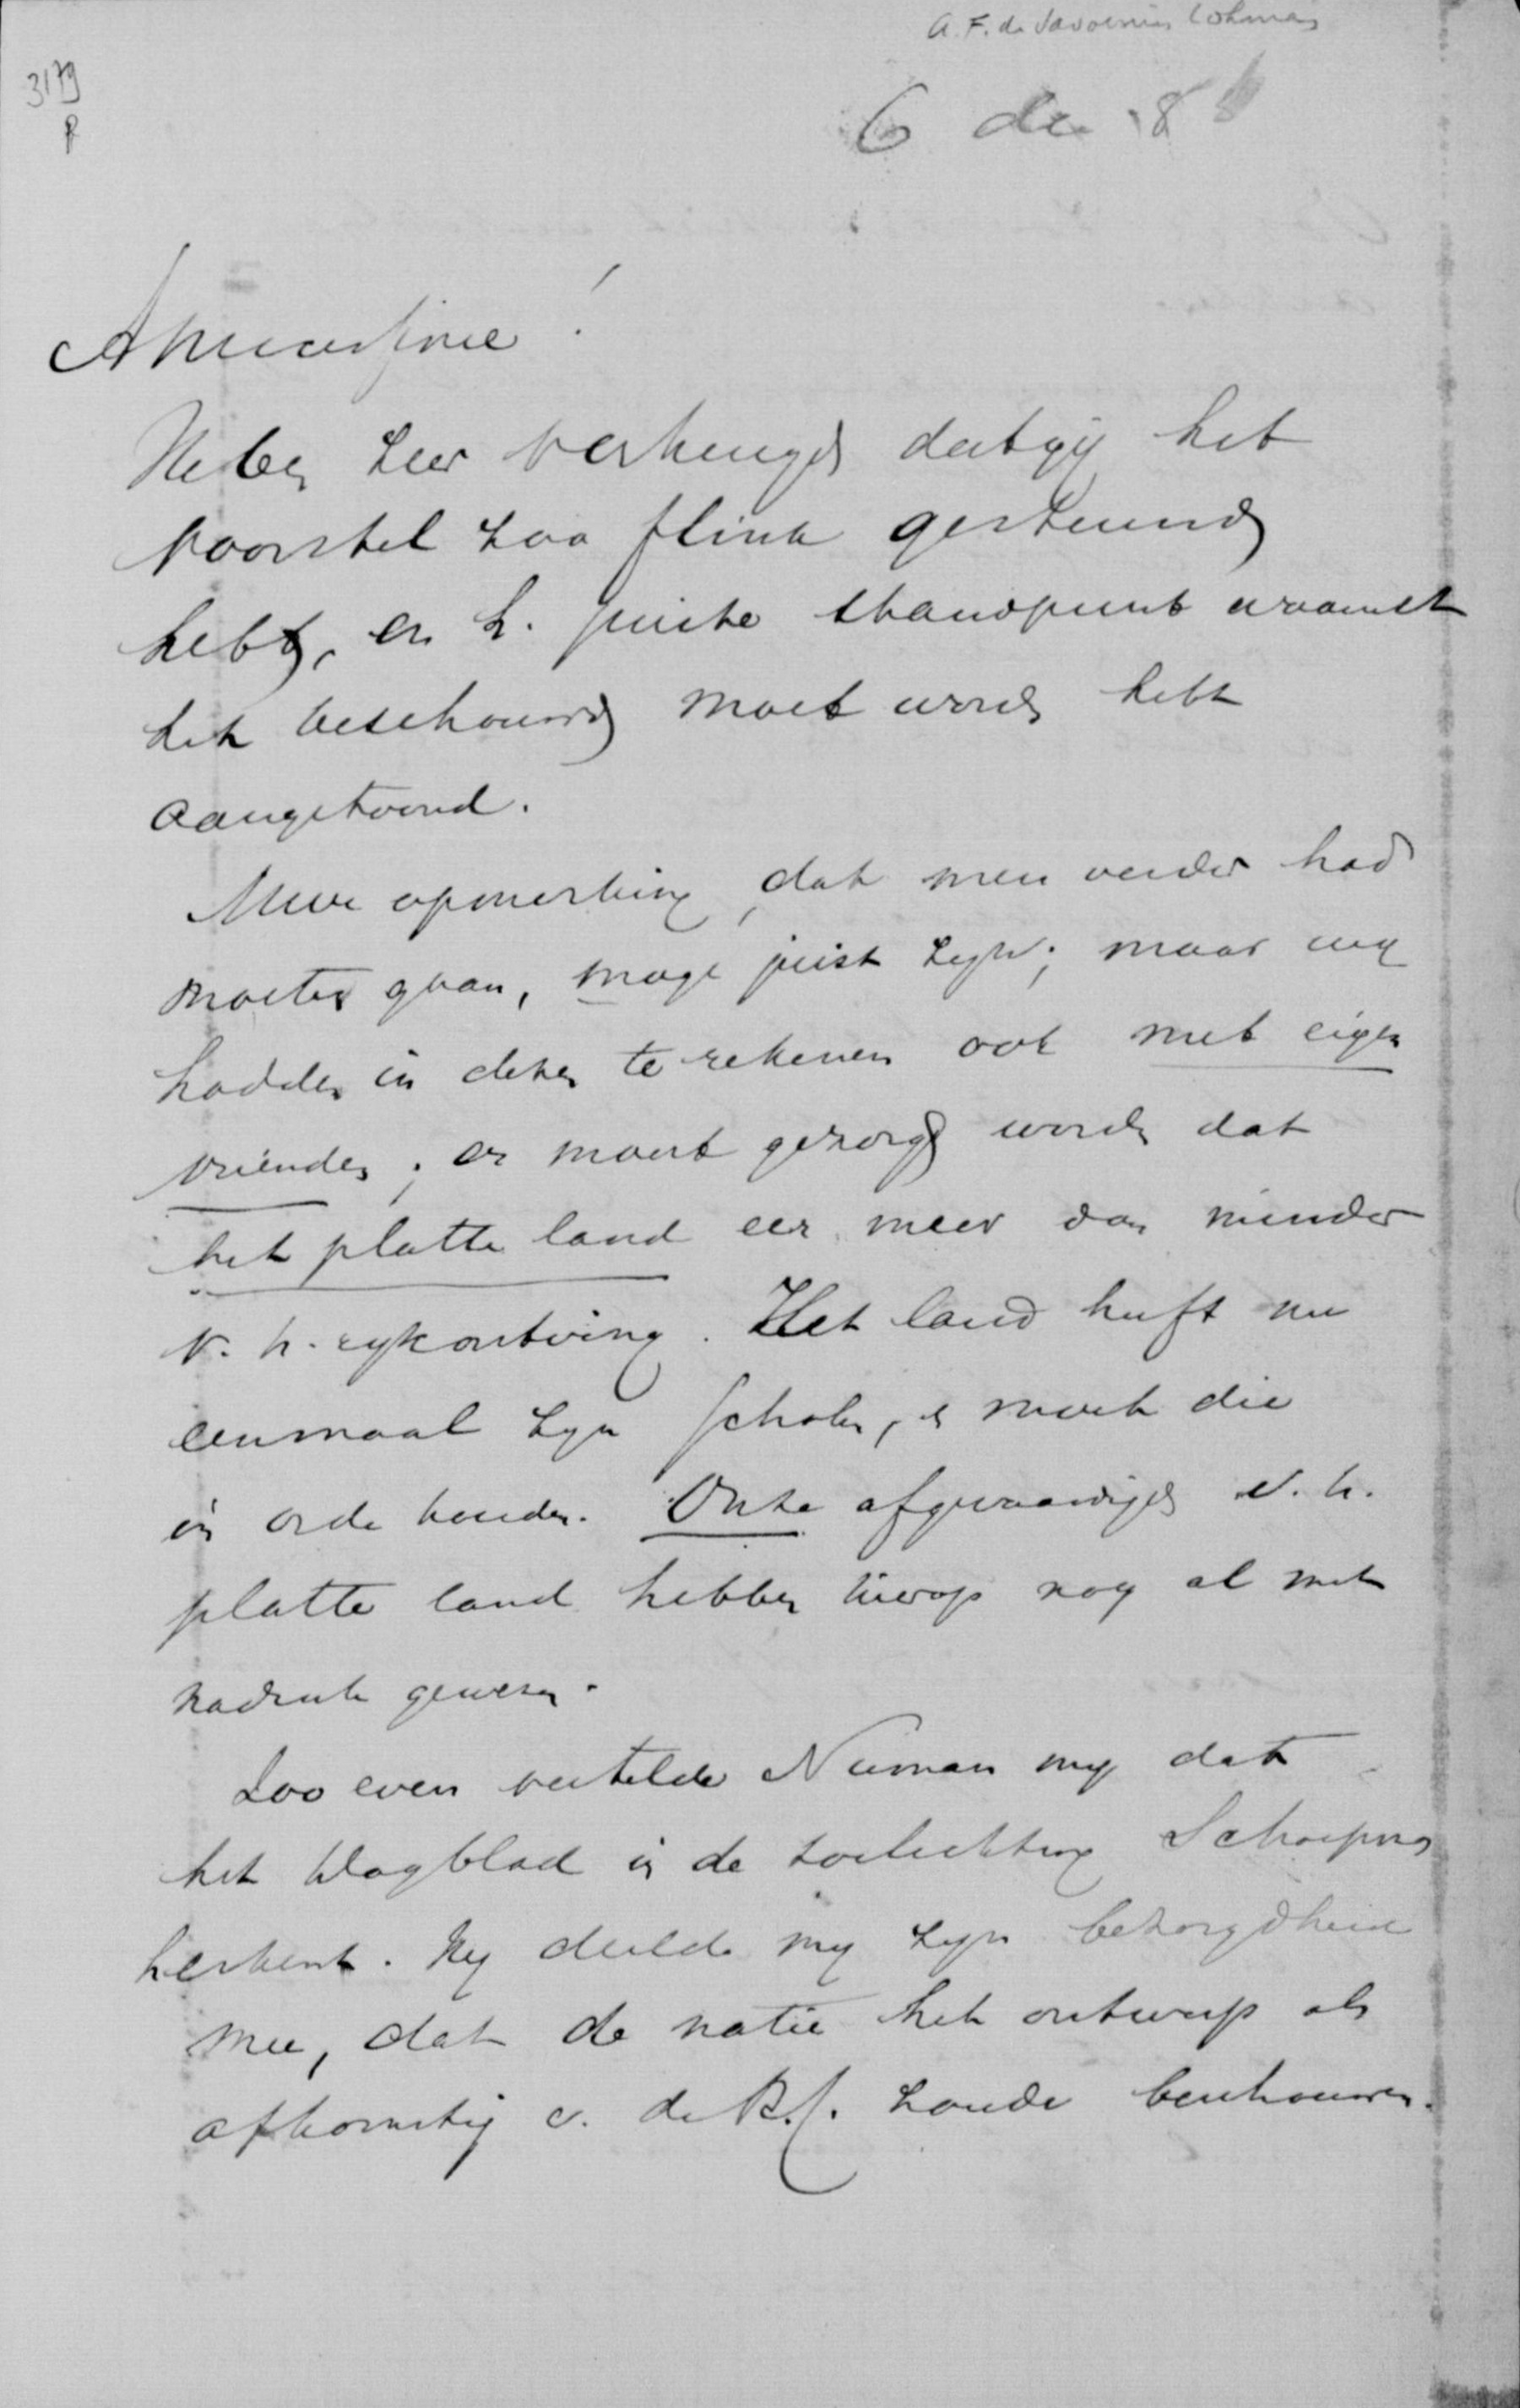 A. F. de Savornin Lohman
3179
P
6 dec 88
Amicissime!
Ik ben zeer verheugd dat gij het
voorstel zoo flink gesteund
hebt, en h. juiste standpunt waaruit
het beschouwd moet worden hebt
aangetoond.
Uwe opmerking, dat men verder had
moeten gaan, moge juist zijn; maar wij
hadden in dezen te rekenen ook met eigen
vrienden; er moest gezorgd worden dat
het platte land eer meer dan minder
v. h. rijk ontving. Het land heeft nu
eenmaal zijn scholen, & moet die
in orde houden. Onze afgevaardigden v. h.
platte land hebben hierop nog al met
nadruk gewezen.
Zoo even vertelde Neuman mij dat
het Dagblad in de toelichting Schaepman
herkent. Hij deelde mij zijn bezorgdheid
mee, dat de natie het ontwerp als
afkomstig v. de R.C. zoude beschouwen.